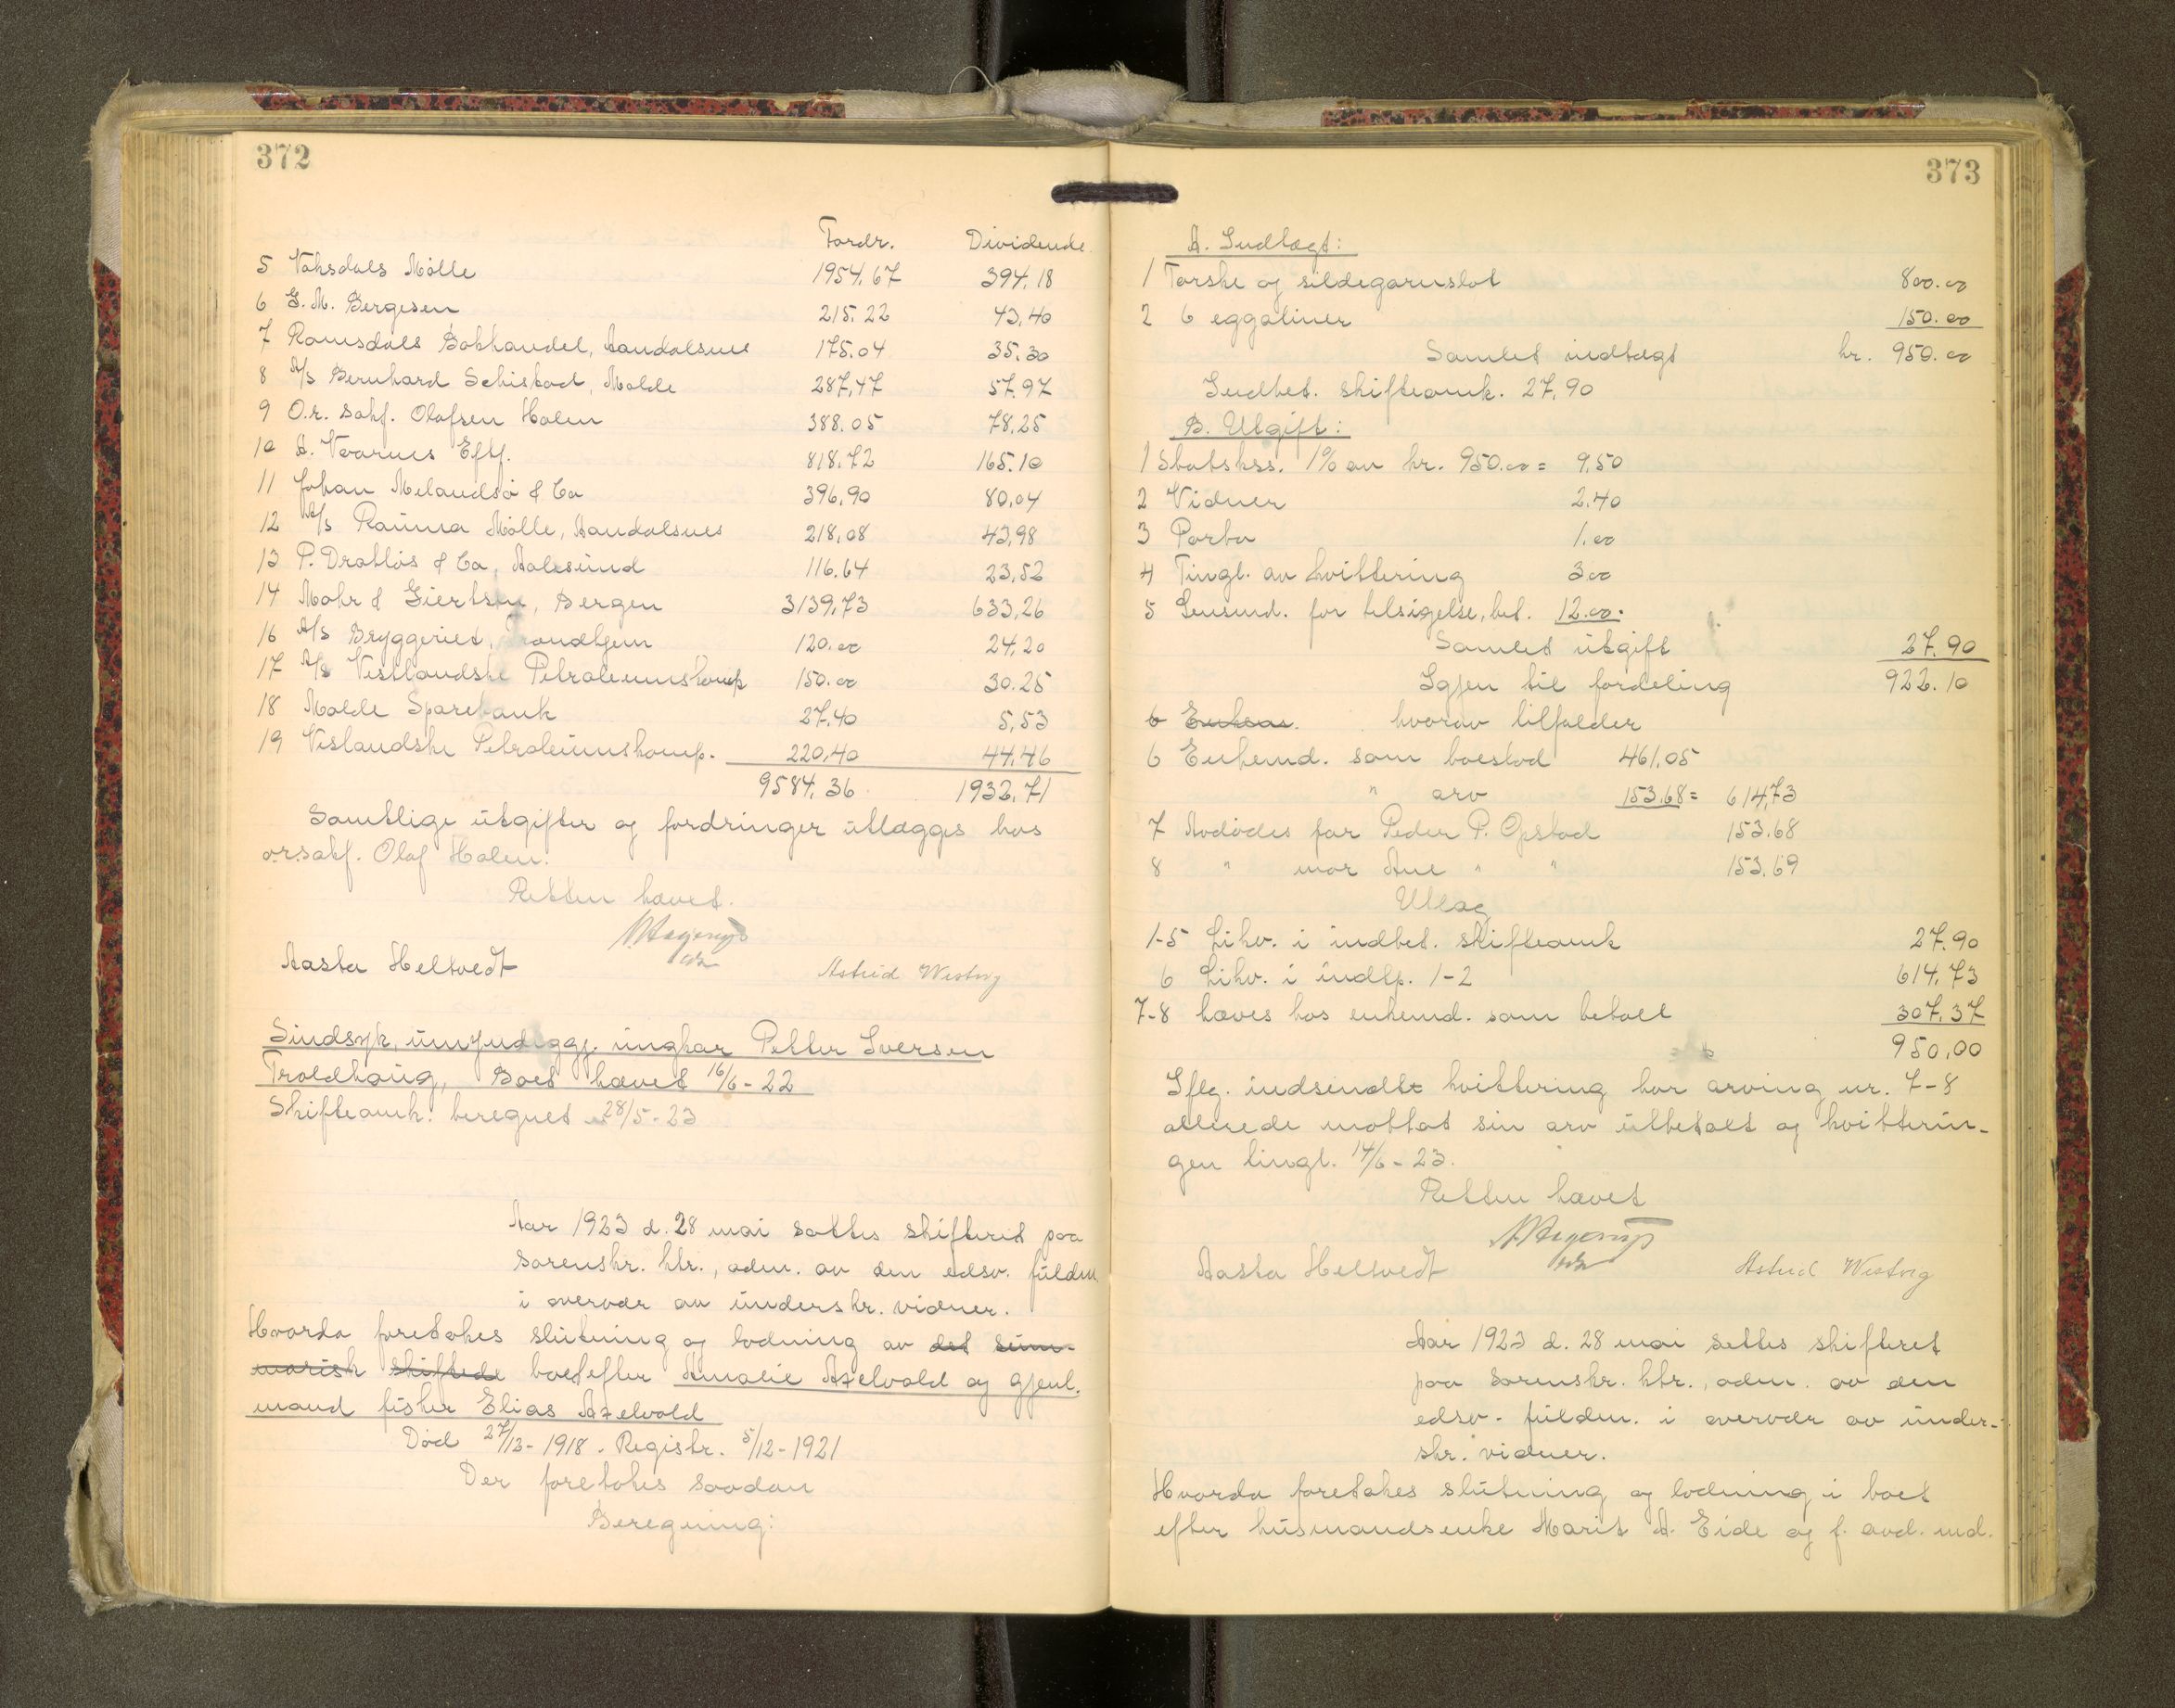 372
Fordr. Dividende.
5 Vaksdals Mølle 1954.67 394.18
6 G. M. Bergesen 215.22 43.40
7 Romsdals Bokhandel, Aandalsnes 175.04 35.30
8 A/s Bernhard Schistad, Molde 287,47 57.97
9 O.r. sakf. Olafsen Holen 388.05 78.25
10 A. Vaarnes Eftf. 818.72 165.10
11 Johan Melandsø & Co 396,90 80,04
12 A/s Rauma Mølle, Aandalsnes 218,08 43,98
13 P. Drabløs & Co, Aalesund 116.64 23,52
14 Mohr & Giertsen, Bergen 3139,73 633,26
16 A/s Bryggeriet, Trondhjem 120.00 24,20
17 A/s Vestlandske Petroleumskomp 150.00 30.25
18 Molde Sparebank 27,40 5,53
19 Vestlandske Petroleumskomp. 220,40 44,46
9584,36 1932,71
Samtlige utgifter og fordringer utlægges hos
o.r.sakf. Olaf Holen.
Retten hævet.
Aasta Heltvedt Astrid Westvig
Sindsyk, umyndiggj. ungkar Petter Iversen
Troldhaug, Boet hævet 16/6-22
Skifteomk. beregnet 28/5-23
Aar 1923 d. 28 mai sattes skifteret paa
sorenskr. ktr., adm. av den edsv. fuldm.
i overvær av underskr. vidner.
Hvorda foretakes slutning og lodning av det sum-
marisk skiftede boet efter Amalie Axelvold og gjenl.
mand fisker Elias Axelvold
Død 27/12-1918. Registr. 5/12-1921
Der foretokes saadan
Beregning:
373
A. Indtægt:
1 Torske og sildegarnslot 800.00
2 6 eggaliner 150.00
Samlet indtægt kr. 950.00
Indbet. skifteomk. 27,90
B. Utgift:
1 Statskss. 1% av kr. 950.00 = 9,50
2 Vidner 2,40
3 Porto 1.00
4 Tingl. av kvittering 3.00
5 Lensmd. for tilsigelse, bet. 12.00.
Samlet utgift 27.90
Igjen til fordeling 922.10
6 Enkem. hvorav tilfalder
6 Enkemd. som boeslod 461,05
" arv 153,68 = 614,73
7 Avdødes far Peder P. Opstad 153.68
8 " mor Ane " " 153.69
Utlæg
1-5 Likv. i indbet. skifteomk 27.90
6 Likv. i indtp. 1-2 614,73
7-8 hæves hos enkemd. som betalt 307,37
950,00
Iflg. indsendte kvittering har arving nr. 7-8
allerede mottat sin arv utbetalt og kvitterin-
gen tingl. 14/6-23.
Retten hævet
Aasta Heltvedt Astrid Westvig
Aar 1923 d. 28 mai sattes skifteret
paa sorenskr. ktr., adm. av den
edsv. fuldm. i overvær av under-
skr. vidner.
Hvorda foretakes slutning og lodning i boet
efter husmandsenke Marit A. Eide og f. avd. md.